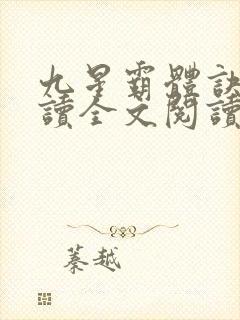 九星霸體訣
讀全文閱讀
蓁越